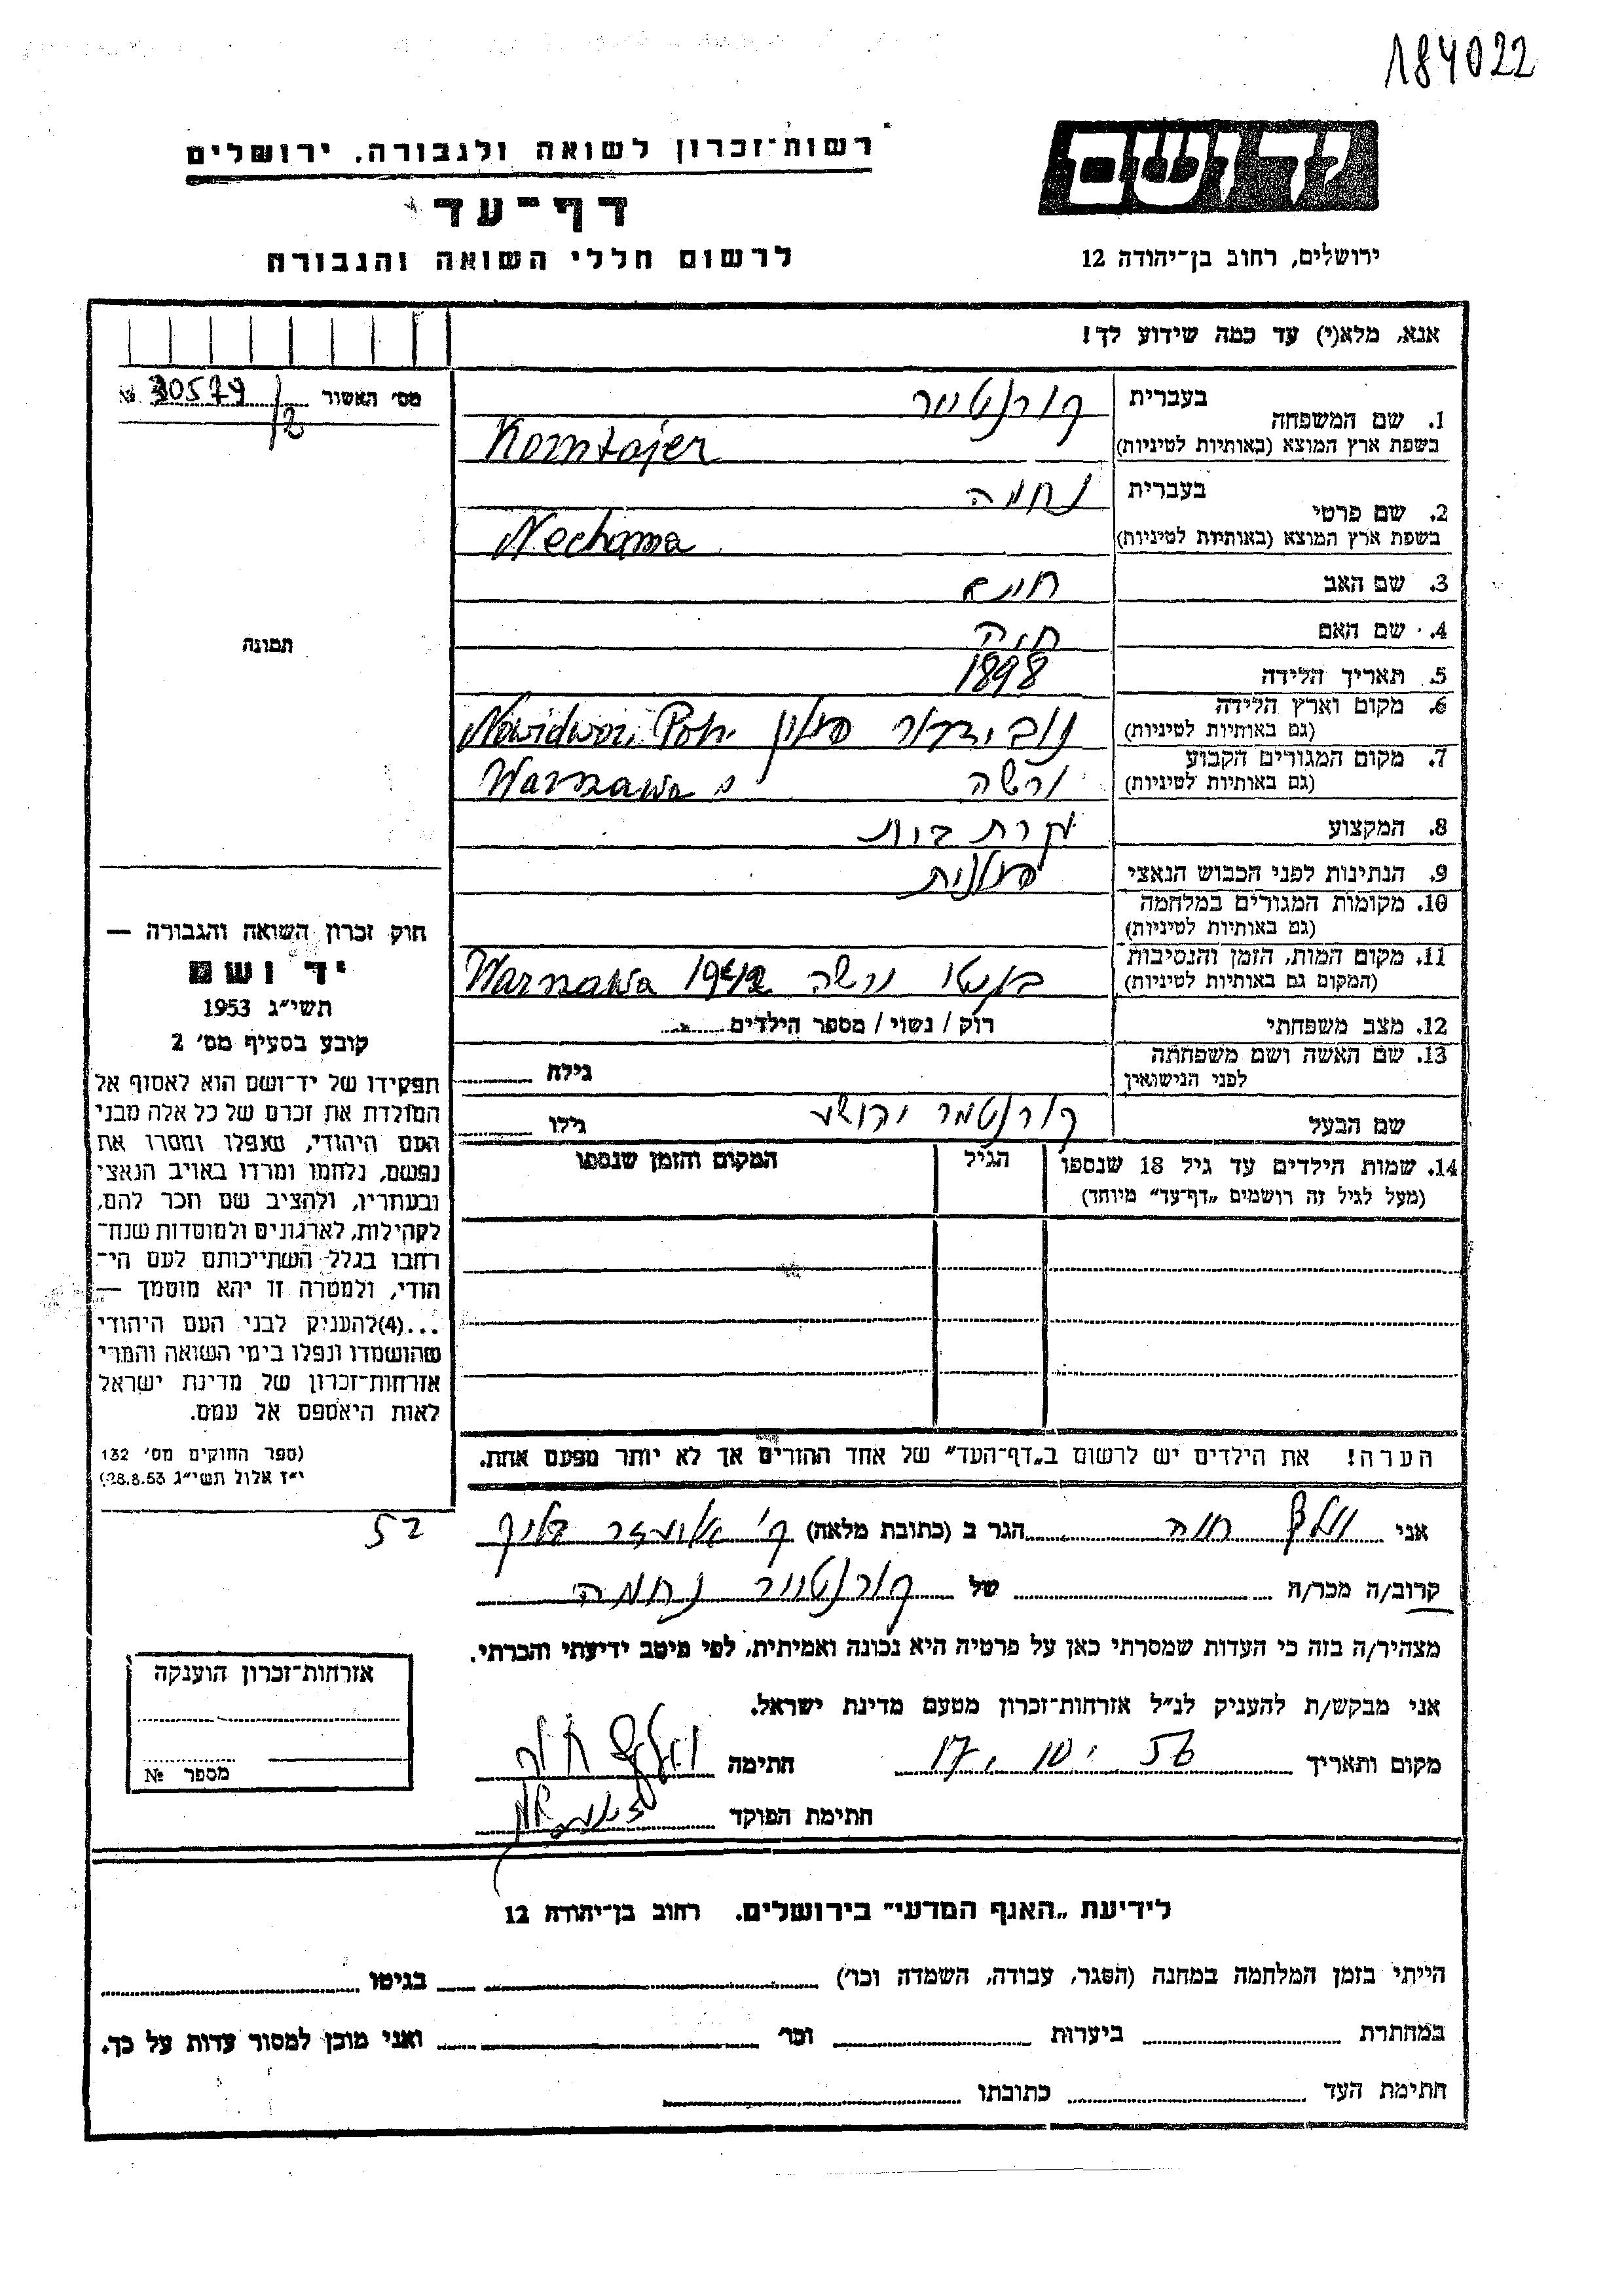 184022
יד ושם
ירושלים, רחוב בן־יהודה 12
רשות־זכרון לשואה ולגבורה, ירושלים
דף־עד
לרשום חללי השואה והגבורה
אנא, מלא(י) עד כמה שידוע לך!
מס׳ האשור № 30579/2
בעברית קורנטייר
1. שם המשפחה
בשפת ארץ המוצא (באותיות לטיניות) Korntajer
בעברית נחמה
2. שם פרטי
בשפת ארץ המוצא (באותיות לטיניות) Nechama
3. שם האב
4. שם האם חיה
5. תאריך הלידה 1898
6. מקום וארץ הלידה
(גם באותיות לטיניות) פולין
7. מקום המגורים הקבוע
(גם באותיות לטיניות) ורשה Warszawa
8. המקצוע עקרת בית
9. הנתינות לפני הכבוש הנאצי פולנית
10. מקומות המגורים במלחמה
(גם באותיות לטיניות)
11. מקום המות, הזמן והנסיבות
(המקום גם באותיות לטיניות) בגטו ורשה 1942 Warszawa
12. מצב משפחתי רוק / נשוי / מספר הילדים
13. שם האשה ושם משפחתה
לפני הנישואין גילה
שם הבעל קורנטייר גילו
14. שמות הילדים עד גיל 18 שנספו הגיל המקום והזמן שנספו
(מעל לגיל זה רושמים „דף־עד” מיוחד)
הערה! את הילדים יש לרשום ב„דף־העד” של אחד ההורים אך לא יותר מפעם אחת.
תמונה
חוק זכרון השואה והגבורה —
יד ושם
תשי״ג 1953
קובע בסעיף מס׳ 2
תפקידו של יד־ושם הוא לאסוף אל
המולדת את זכרם של כל אלה מבני
העם היהודי, שנפלו ומסרו את
נפשם, נלחמו ומרדו באויב הנאצי
ובעוזריו, ולהציב שם וזכר להם,
לקהילות, לארגונים ולמוסדות שנח־
רבו בגלל השתייכותם לעם הי־
הודי, ולמטרה זו יהא מוסמך —
...(4)להעניק לבני העם היהודי
שהושמדו ונפלו בימי השואה והמרי
אזרחות־זכרון של מדינת ישראל
לאות היאספם אל עמם.
(ספר החוקים מס׳ 132
י״ז אלול תשי״ג 28.8.53)
אני וולף חוה הגר ב (כתובת מלאה) ק׳ 52
קרוב/ה מכר/ה של קורנטייר נחמה
מצהיר/ה בזה כי העדות שמסרתי כאן על פרטיה היא נכונה ואמיתית, לפי מיטב ידיעתי והכרתי.
אני מבקש/ת להעניק לנ״ל אזרחות־זכרון מטעם מדינת ישראל.
מקום ותאריך 17.10.56 חתימה וולף חוה
חתימת הפוקד
אזרחות־זכרון הוענקה
מספר №
לידיעת „האגף המדעי” בירושלים. רחוב בן־יהודה 12
הייתי בזמן המלחמה במחנה (הסגר, עבודה, השמדה וכו׳) בגיטו
במחתרת ביערות וכו׳ ואני מוכן למסור עדות על כך.
חתימת העד כתובתו